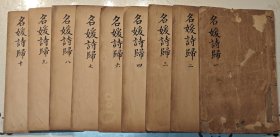 名媛詩歸 一
名媛詩歸 二
名媛詩歸 三
名媛詩歸 四
名媛詩歸 六
名媛詩歸 七
名媛詩歸 八
名媛詩歸 九
名媛詩歸 十